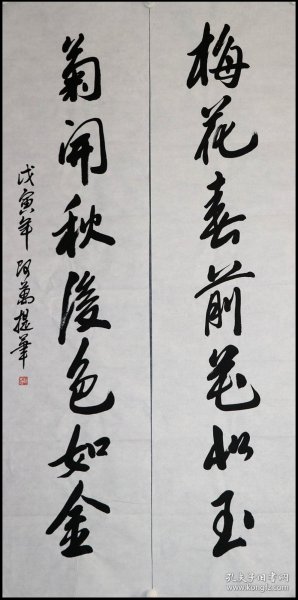 梅花春前花似玉
菊開秋後色如金
戊寅年 萬提筆
孔夫子旧书网
www.kongfz.com